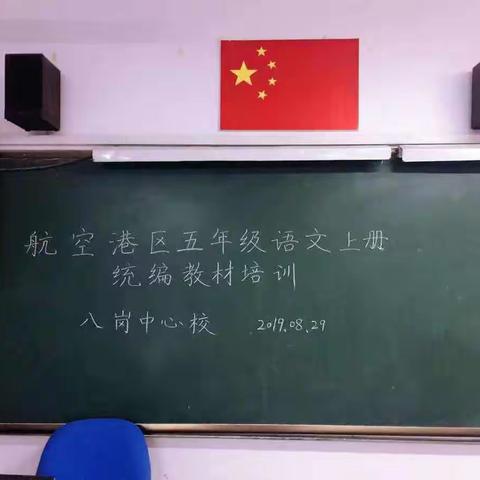 航空港区五年级语文上册
统编教材培训
八岗中心校 2019.08.29